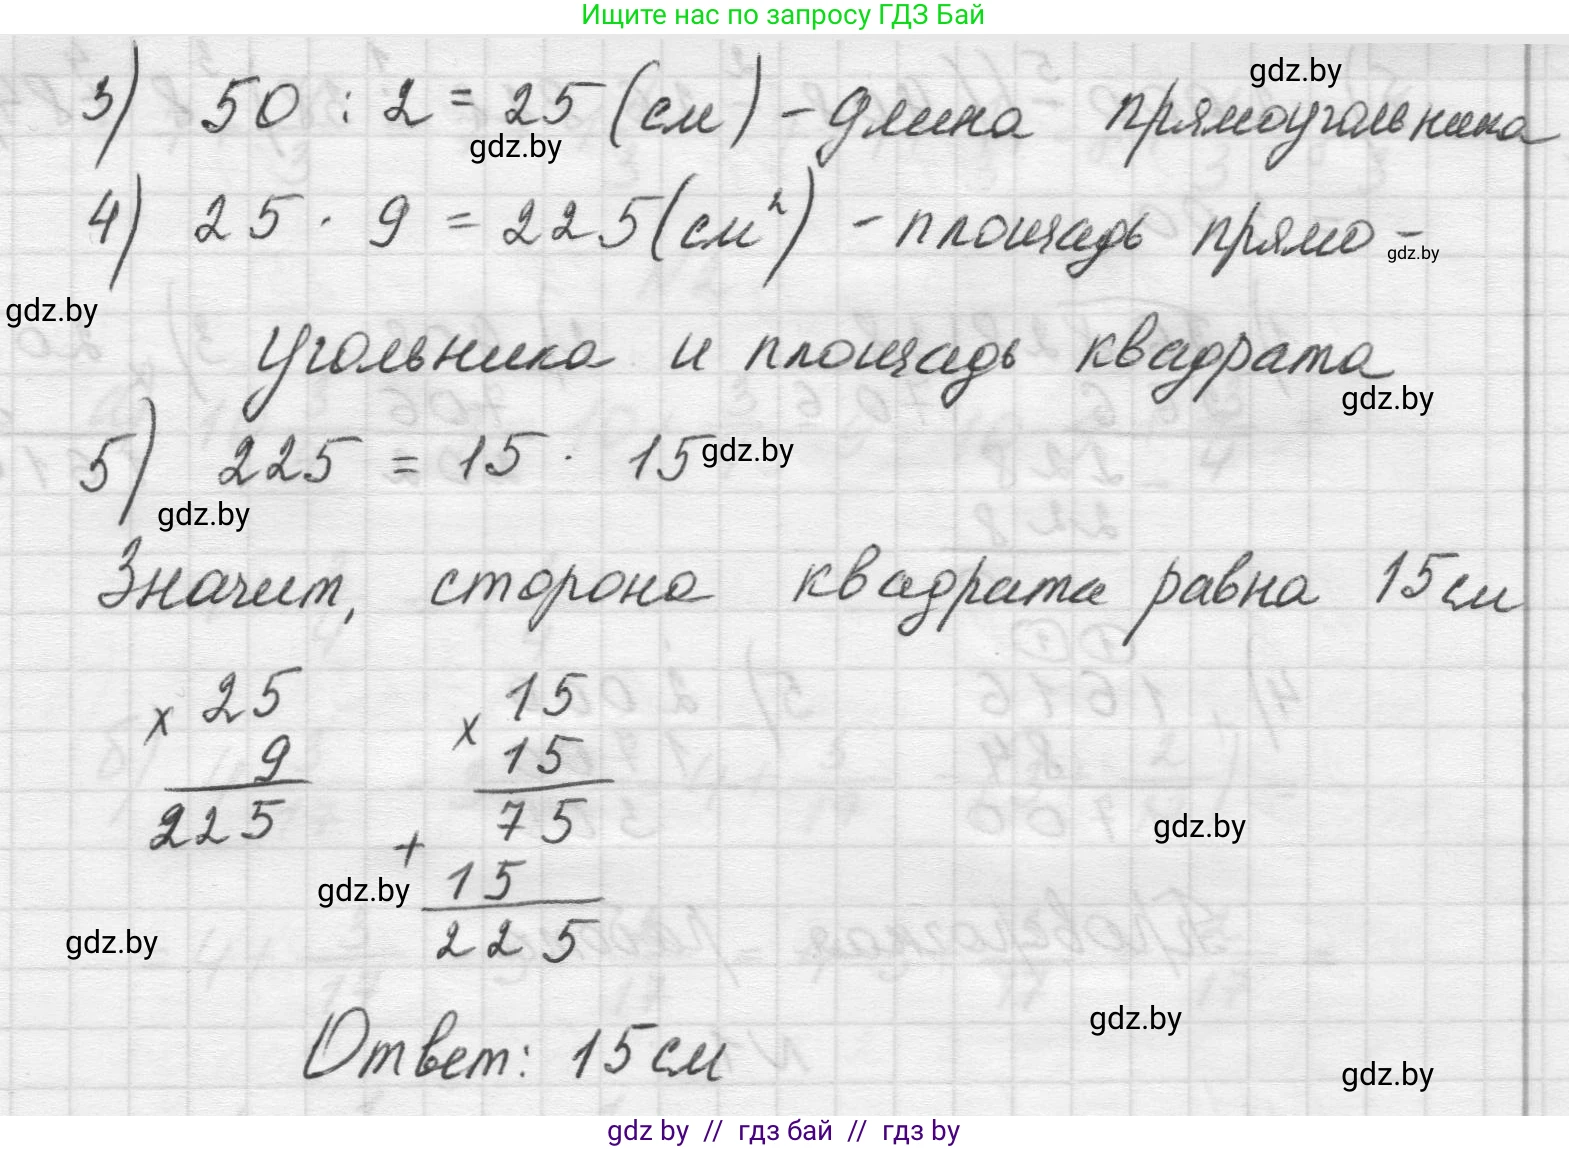 Ищите нас по запросу ГДЗ Бай
gdz.by
3) 50 : 2 = 25 (см) – длина прямоугольника
gdz.by
4) 25 · 9 = 225 (см²) – площадь прямо-
gdz.by
gdz.by
угольника и площадь квадрата
gdz.by
5) 225 = 15 · 15
gdz.by
gdz.by
Значит, сторона квадрата равна 15 см
x 25
9
225
x 15
15
75
+
15
225
gdz.by
gdz.by
gdz.by
gdz.by
Ответ: 15 см
gdz.by
gdz by // гдз бай // гдз by